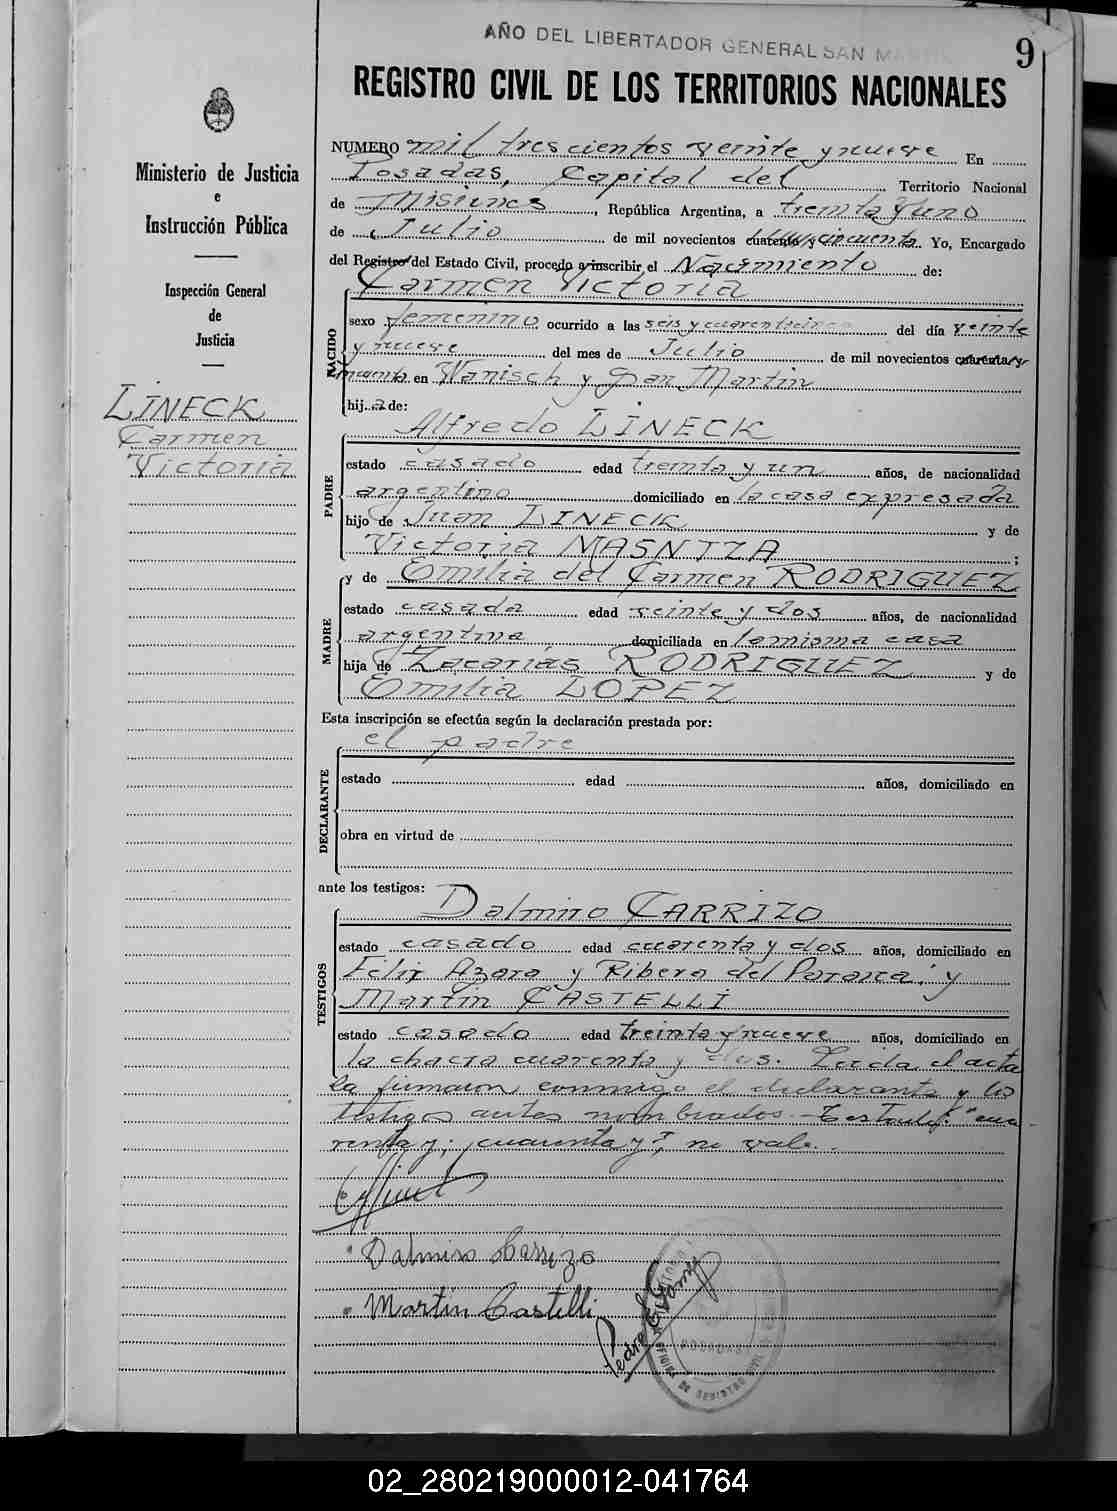 AÑO DEL LIBERTADOR GENERAL SAN MARTIN
9
REGISTRO CIVIL DE LOS TERRITORIOS NACIONALES
Ministerio de Justicia
e
Instrucción Pública
Inspección General
de
Justicia
LINECK
Carmen
Victoria
NUMERO mil trescientos veinte y nueve En
Posadas, Capital del Territorio Nacional
de Misiones, República Argentina, a treinta y uno
de Julio de mil novecientos cuarenta y cincuenta. Yo, Encargado
del Registro del Estado Civil, procedo a inscribir el Nacimiento de:
NACIDO
Carmen Victoria
sexo femenino ocurrido a las seis y cuarenta cinco del día veinte
y nueve del mes de Julio de mil novecientos cuarenta y
cincuenta en Wanisch y San Martin
hija de:
PADRE
Alfredo LINECK
estado casado edad treinta y un años, de nacionalidad
argentino domiciliado en la casa expresada
hijo de Juan LINECK y de
Victoria MASNIZA ;
MADRE
y de Emilia del Carmen RODRIGUEZ
estado casada edad veinte y dos años, de nacionalidad
argentina domiciliada en la misma casa
hija de Zacarías RODRIGUEZ y de
Emilia LOPEZ
Esta inscripción se efectúa según la declaración prestada por:
DECLARANTE
el padre
estado edad años, domiciliado en
obra en virtud de
ante los testigos:
TESTIGOS
Dalmiro CARRIZO
estado casado edad cuarenta y dos años, domiciliado en
Felix Azara y Ribera del Paraná y
Martin CASTELLI
estado casado edad treinta y nueve años, domiciliado en
la chacra cuarenta y dos. Leida el acta
la firmaron conmigo el declarante y los
testigos antes nombrados.- Testado: "cua
renta y; cuarenta y", no vale.
Dalmiro Carrizo
Martin Castelli
Pedro Gomez
POSADAS
OFICINA DE REGISTRO CIVIL
02_280219000012-041764